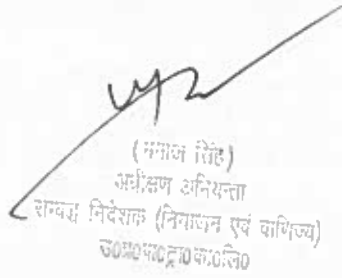 सिंह)
अधीक्षण अभियन्ता
सम्बद्ध निदेशक (नियोजन एवं वाणिज्य)
उ०प्र०पा०ट्रा०का०लि०